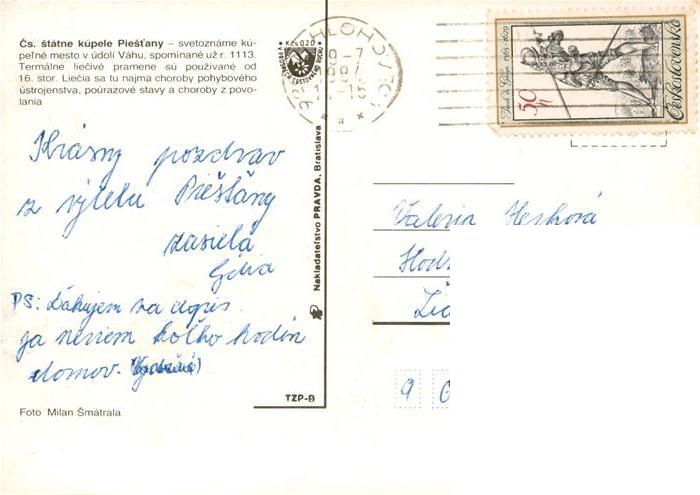 Čs. štátne kúpele Piešťany – svetoznáme kú-
peľné mesto v údolí Váhu, spomínané už r. 1113.
Termálne liečivé pramene sú používané od
16. stor. Liečia sa tu najmä choroby pohybového
ústrojenstva, poúrazové stavy a choroby z povo-
lania
Krásny pozdrav
z výletu Piešťany
zasiela
PS: Ďakujem za dopis.
ja neviem koľko hodín
domov.
Foto Milan Šmátrala
Kčs 0,20
Nakladateľstvo PRAVDA, Bratislava
TZP-B
HLOHOVEC
50
Československo
Valeria Heshová
Hod
9